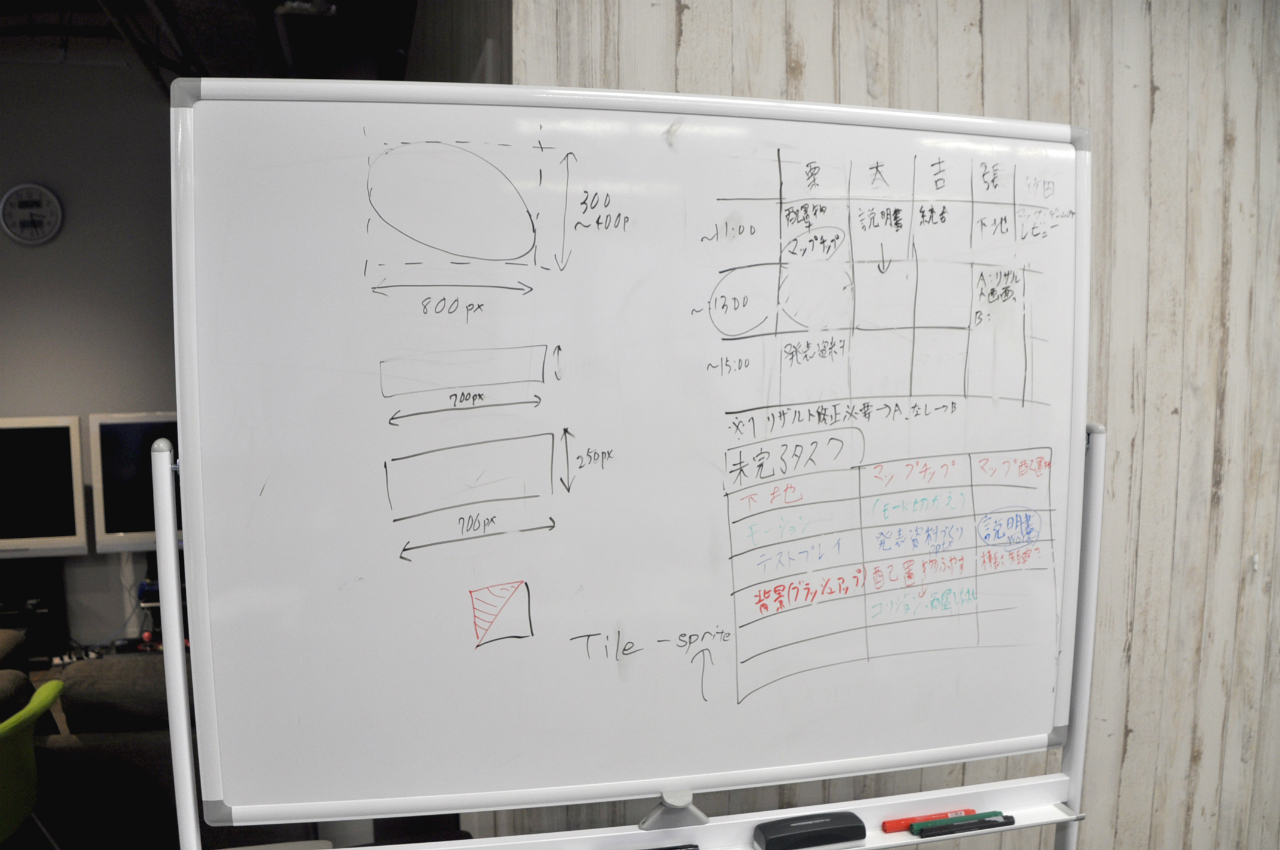 300
~400p
800px
700px
250px
700px
Tile-sprite
栗 太 吉 張
~11:00 配置物 説明書 統合 下地 レビュー
マップチップ
~1300 A:リザルト画面
B:
~15:00 発表資料
※1 リザルト修正必要→A、なし→B
未完了タスク
下地 マップチップ マップ配置物
モーション (モード切りかえ)
テストプレイ 発表資料づくり 説明書
背景(ブラッシュアップ) 配置物ふやす